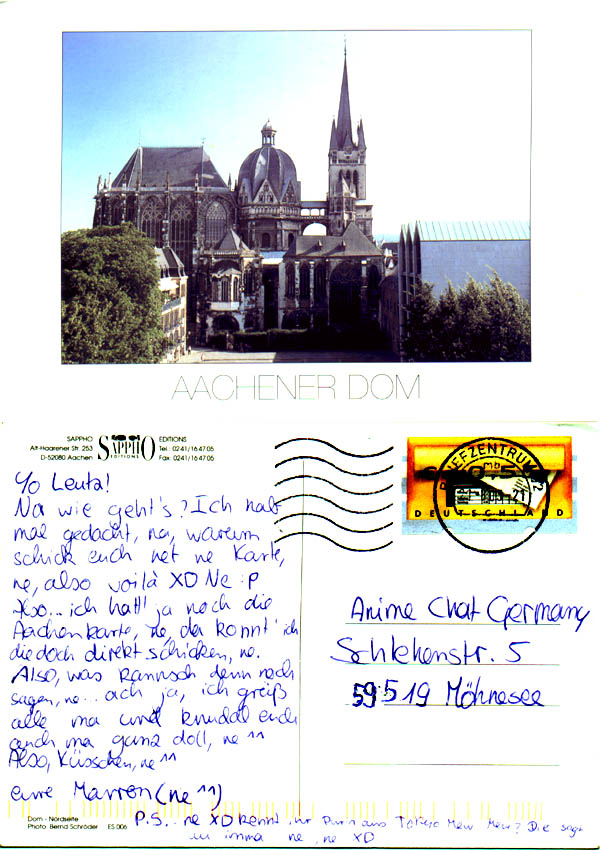 AACHENER DOM
SAPPHO
Alt-Haarener Str. 253
D-52080 Aachen
SAPPHO
EDITIONS
EDITIONS
Tel.: 0241/164705
Fax: 0241/164705
BRIEFZENTRUM
mb
21
DEUTSCHLAND
Yo Leuta!
Na wie geht's? Ich hab
mal gedacht, na, warum
schick euch net ne Karte,
ne, also voilà XD Ne :P
Also... ich hatt' ja noch die
Aachenkarte, ne, da konnt' ich
die doch direkt schicken, ne.
Also, was kannsch denn noch
sagen, ne... ach ja, ich greiß
alle ma und knuddal euch
auch ma ganz doll, ne ^^
Also, Küsschen, ne ^^
eure Marren (ne ^^)
Anime Chat Germany
Schlehenstr. 5
59519 Möhnesee
Dom - Nordseite
Photo: Bernd Schröder ES 006
P.S... ne XD kennt ihr Purin aus Tokyo Mew Mew? Die sagt
imma ne, ne XD